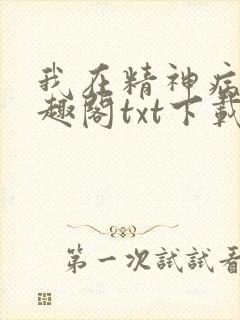 我在精神病
趣阁txt下载
第一次試試看